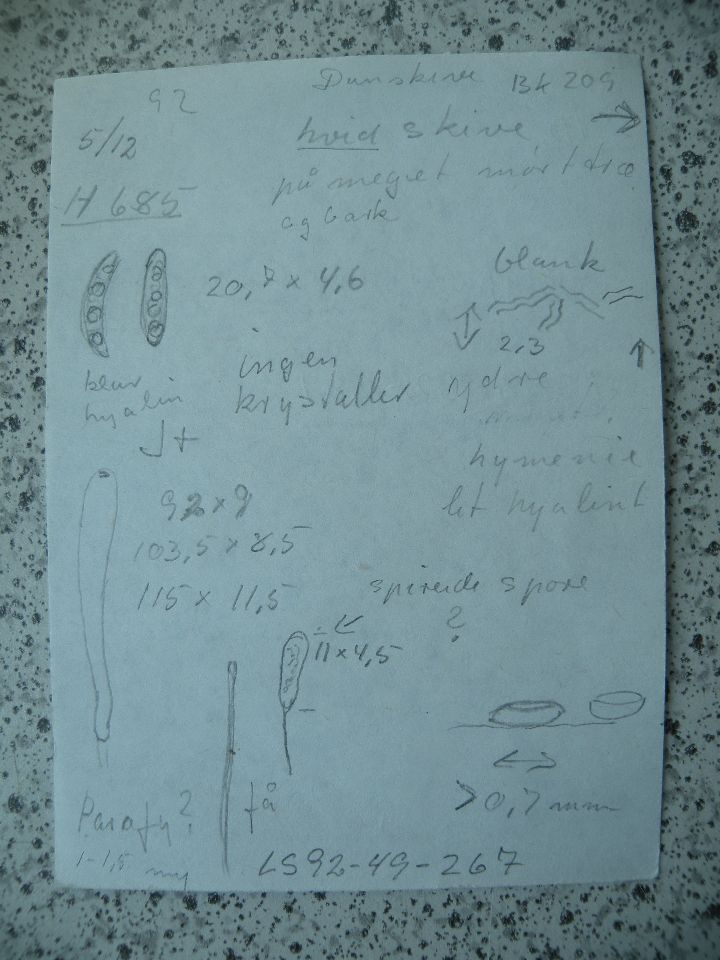 92
Dunskive BK 209
5/12
hvid skive
på meget mørt træ
og bark
H 685
20,7 x 4,6
blank
2,3
ingen
krystaller
ydre
hyalin
J+
hymenie
let hyalint
92 x 9
103,5 x 8,5
115 x 11,5
spirende spore
?
11 x 4,5
få
Parafy?
1-1,5 my
>0,7 mm
LS92-49-267